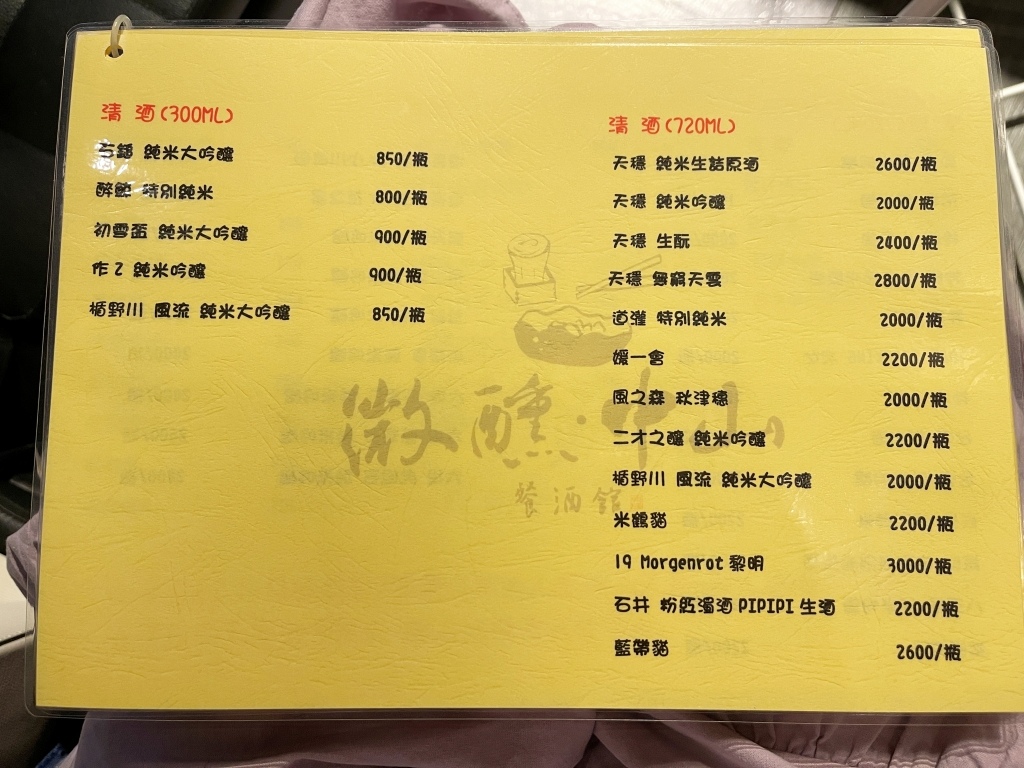 清 酒(300ML)
純米大吟釀 850/瓶
醉鯨 特別純米 800/瓶
初雪盃 純米大吟釀 900/瓶
作Z 純米吟釀 900/瓶
楯野川 風流 純米大吟釀 850/瓶
清 酒(720ML)
天穩 純米生詰原酒 2600/瓶
天穩 純米吟釀 2000/瓶
天穩 生酛 2400/瓶
天穩 無窮天雲 2800/瓶
道灌 特別純米 2000/瓶
媛一會 2200/瓶
風之森 秋津穗 2000/瓶
二才之釀 純米吟釀 2200/瓶
楯野川 風流 純米大吟釀 2000/瓶
米鶴貓 2200/瓶
19 Morgenrot 黎明 3000/瓶
石井 粉紅濁酒 PIPIPI 生酒 2200/瓶
藍帶貓 2600/瓶
微醺·中山
餐酒館